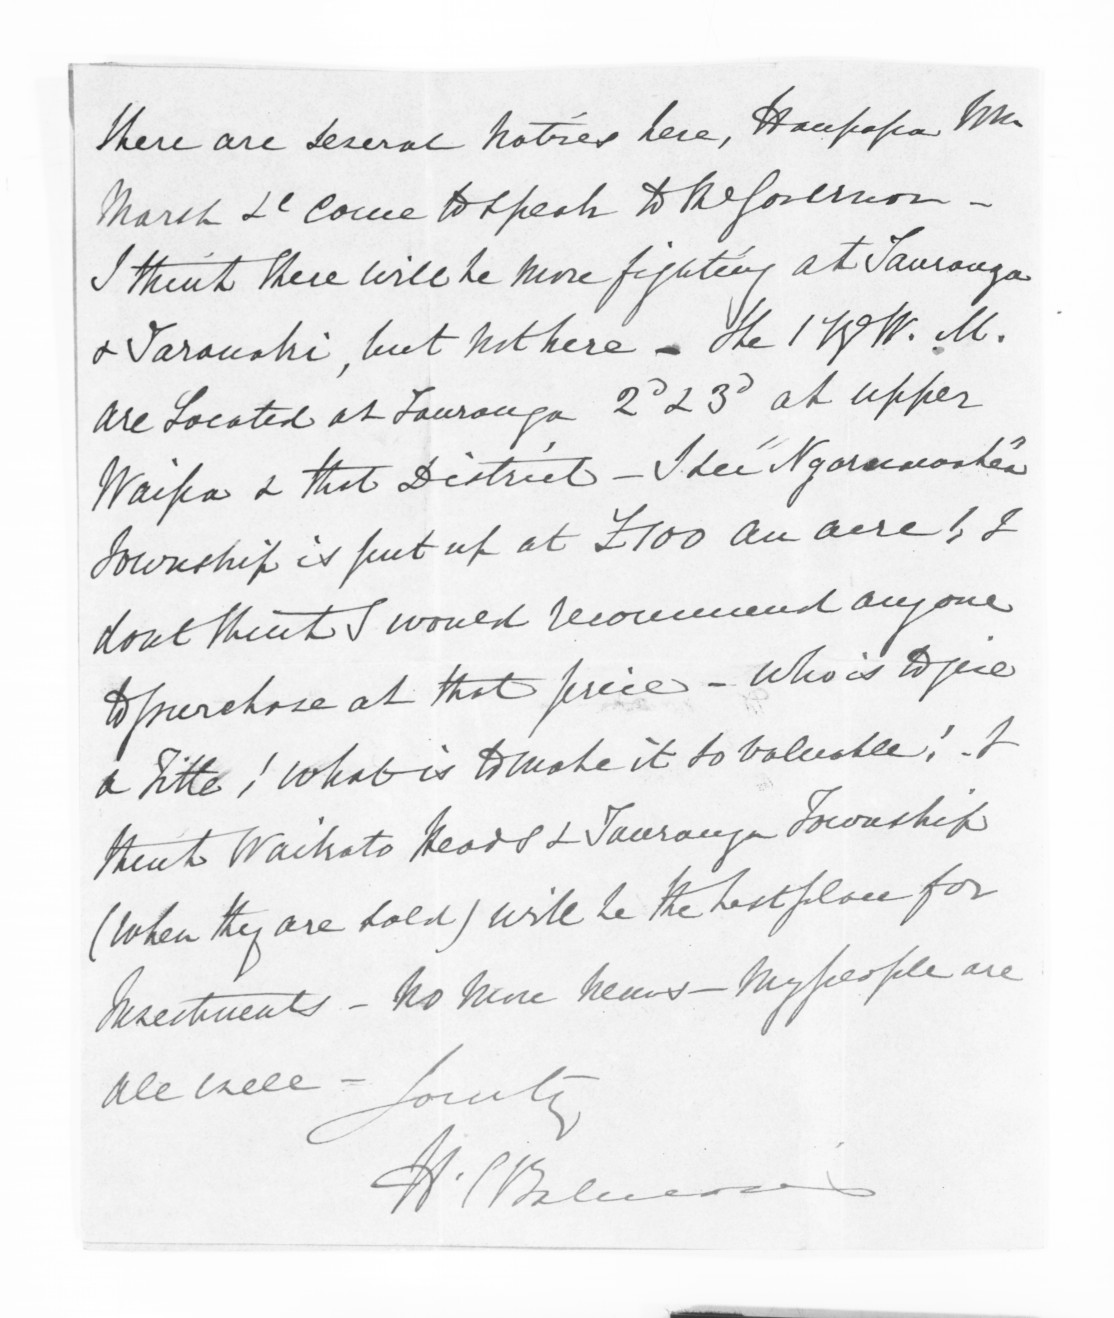 There are several Natives here, Haupapa Wm
Marsh &c come to speak to the Governor -
I think there will be more fighting at Tauranga
& Taranaki, but not here - The 1 W. M.
are Located at Tauranga 2d & 3d at upper
Waipa & that District - I see "Ngaruawahia"
Township is put up at £100 an acre!, I
dont think I would recommend anyone
to purchase at that price - Who is to give
a Title! What is to make it so valuable! - I
think Waikato Heads & Tauranga Township
(when they are sold) will be the best place for
Investments - No more news - My people are
all well -
H.